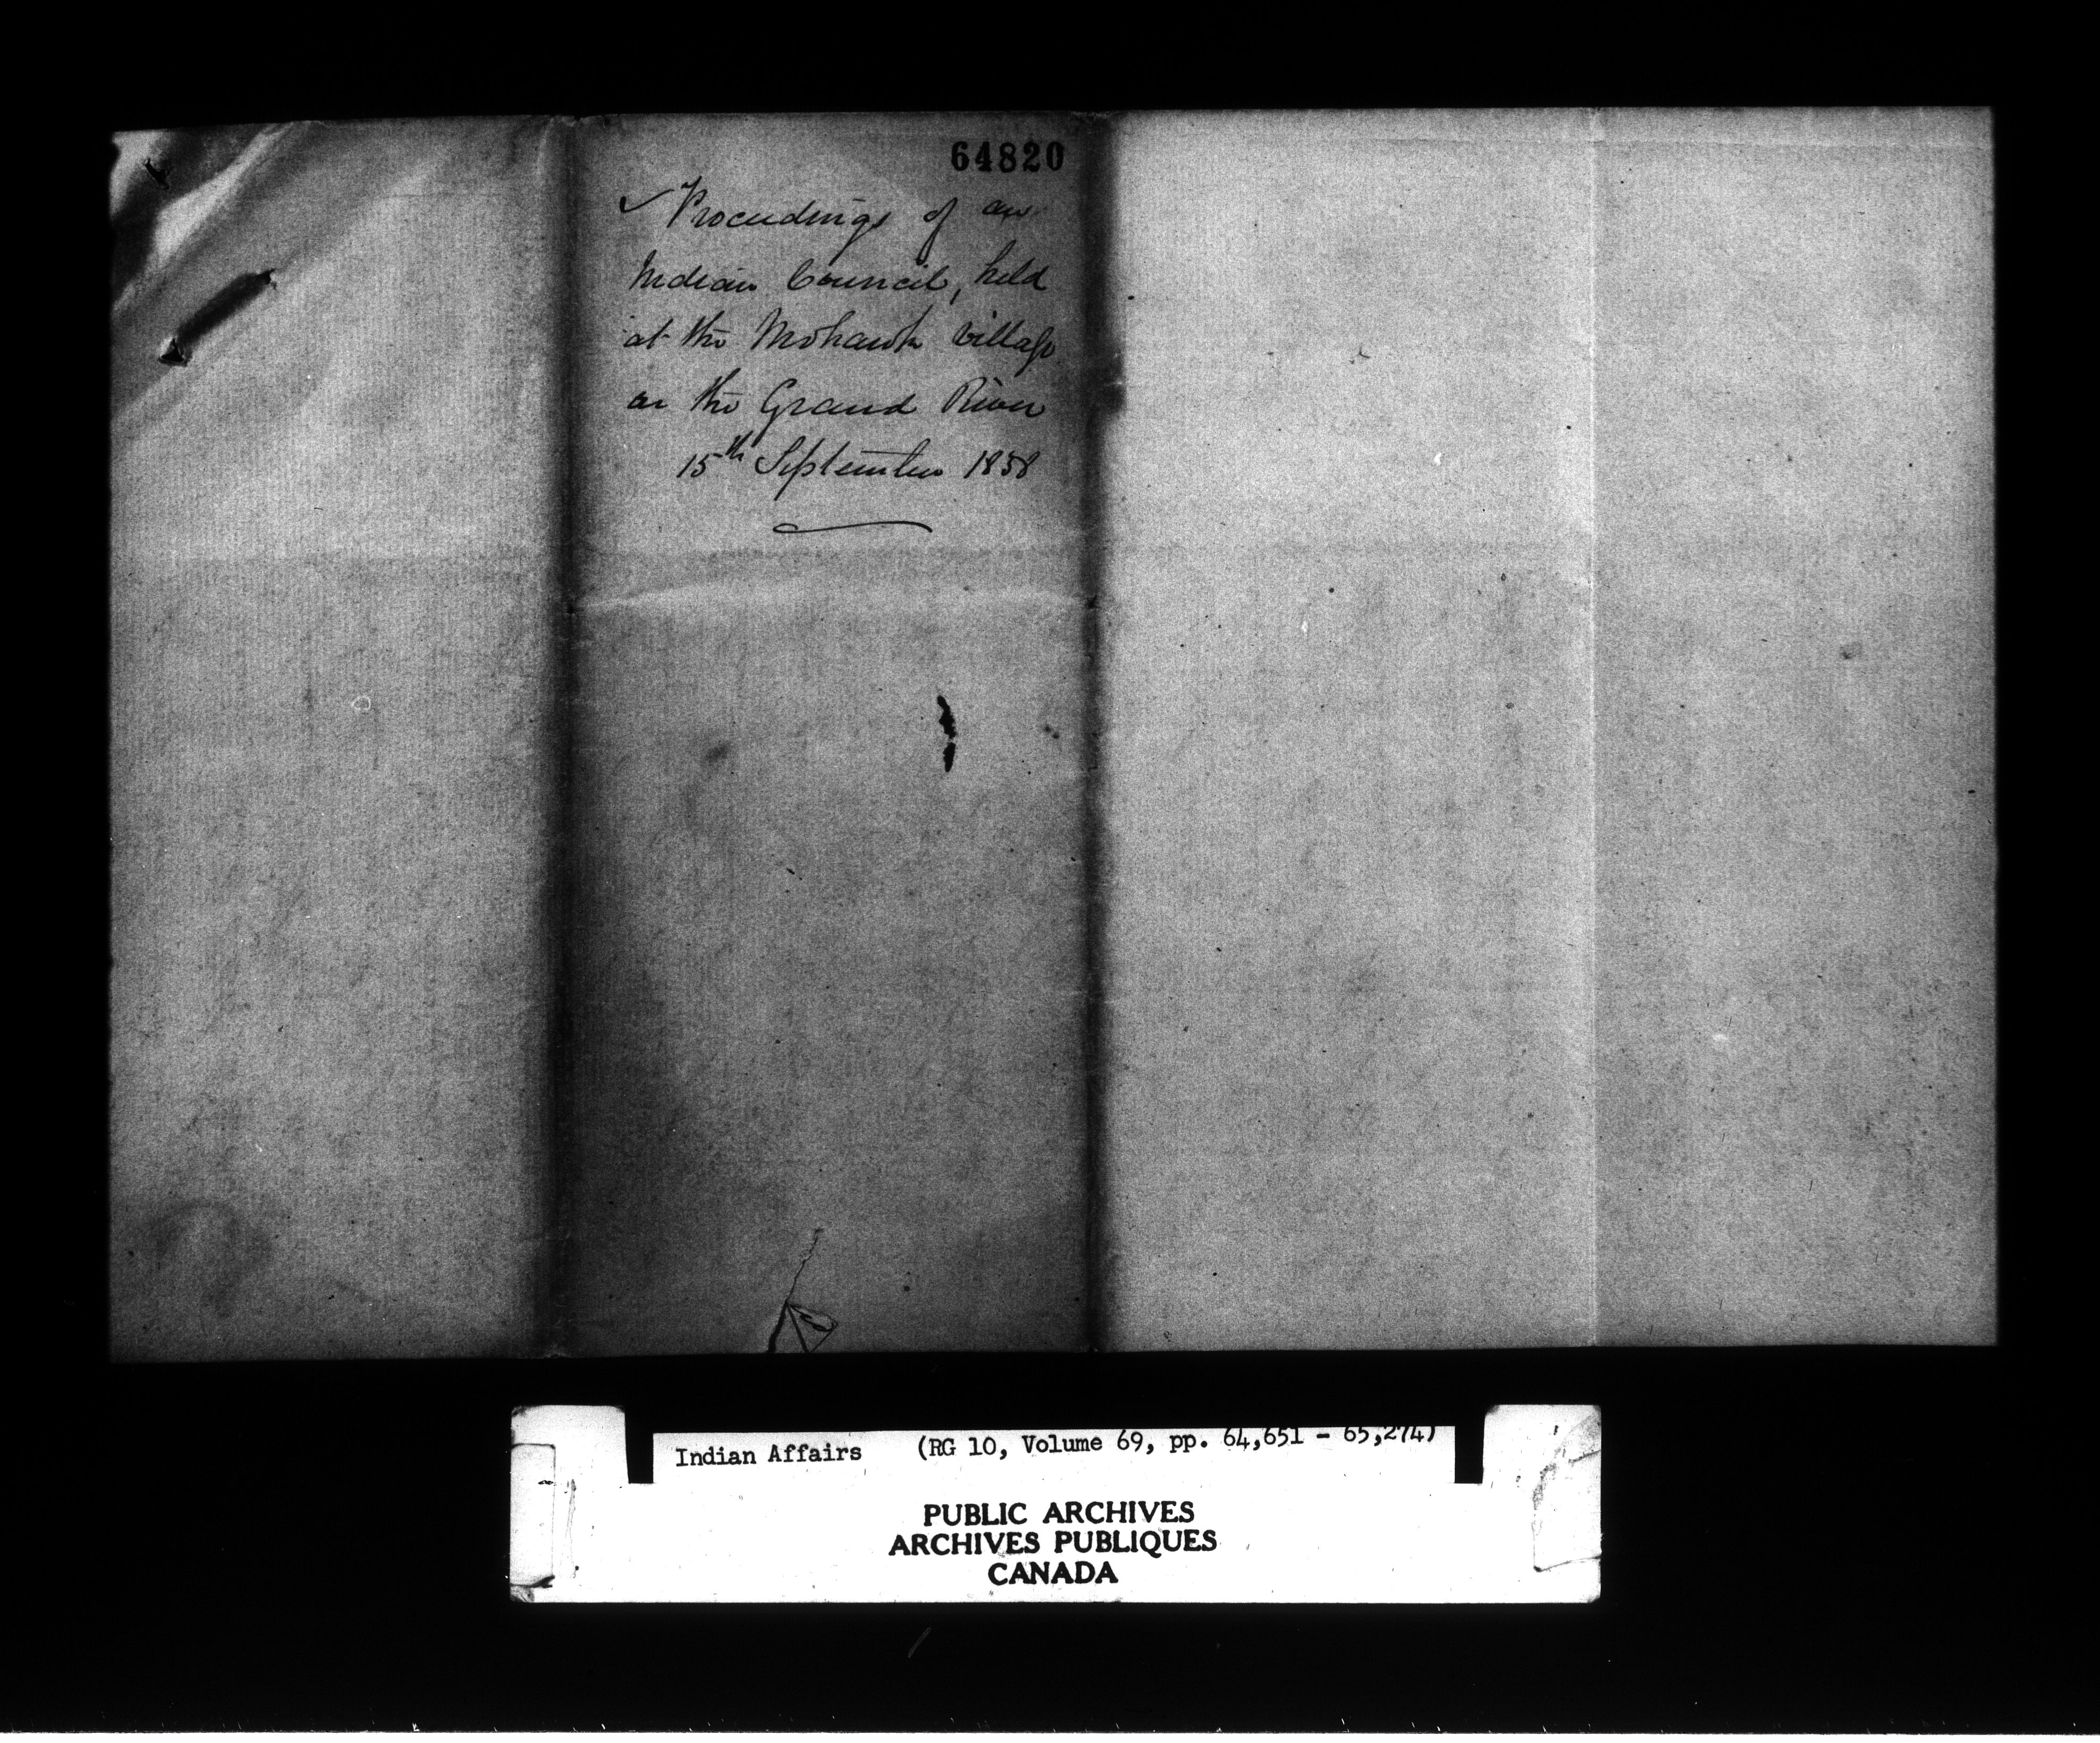 64820
Proceedings of an
Indian Council, held
at the Mohawk Village
on the Grand River
15th September 1838
Indian Affairs (RG 10, Volume 69, pp. 64,651 - 65,274)
PUBLIC ARCHIVES
ARCHIVES PUBLIQUES
CANADA